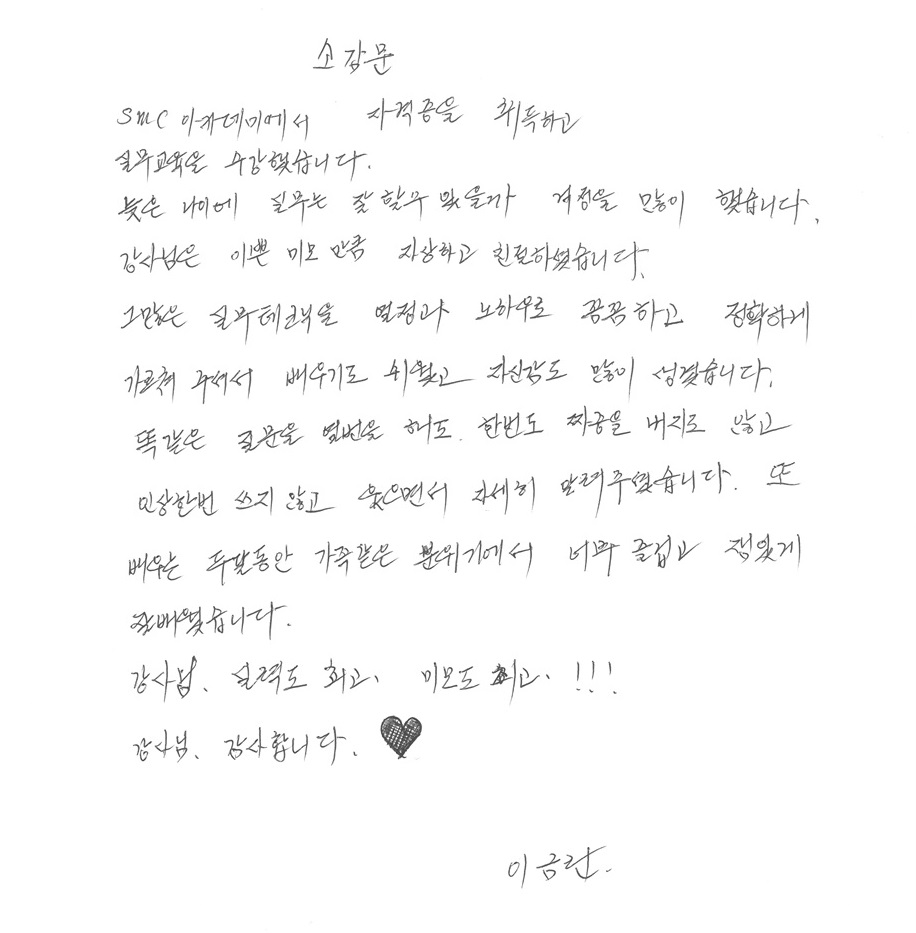 소감문
SMC 아카데미에서 자격증을 취득하고
실무교육을 수강했습니다.
늦은 나이에 실무는 잘 할수 있을까 걱정을 많이 했습니다.
강사님은 이쁜 미모 만큼 자상하고 친절하셨습니다.
그많은 실무테크닉을 열정과 노하우로 꼼꼼하고 정확하게
가르쳐 주셔서 배우기도 쉬웠고 자신감도 많이 생겼습니다.
똑같은 질문을 열번을 해도. 한번도 짜증을 내지도 않고
인상한번 쓰지 않고 웃으면서 자세히 알려주셨습니다. 또
배우는 두달동안 가족같은 분위기에서 너무 즐겁고 잼있게
잘배웠습니다.
강사님. 실력도 최고. 미모도 최고. !!!
강사님. 감사합니다. ♥
이금란.